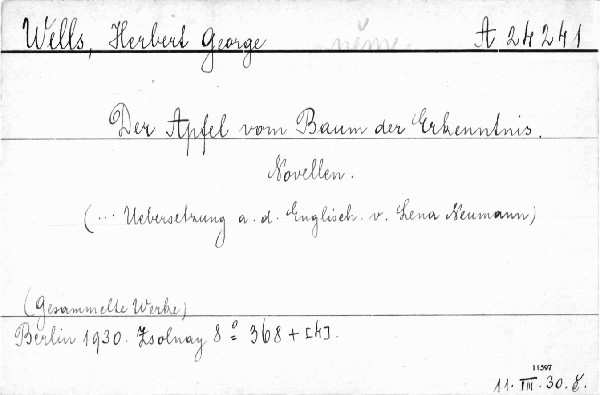 Wells, Herbert George něme. A 24241
Der Apfel vom Baum der Erkenntnis.
Novellen.
(... Uebersetzung a. d. Englisch. v. Lena Neumann)
(Gesammelte Werke)
Berlin 1930. Zsolnay 8° 368 + [4].
11597
11. III. 30. 8.